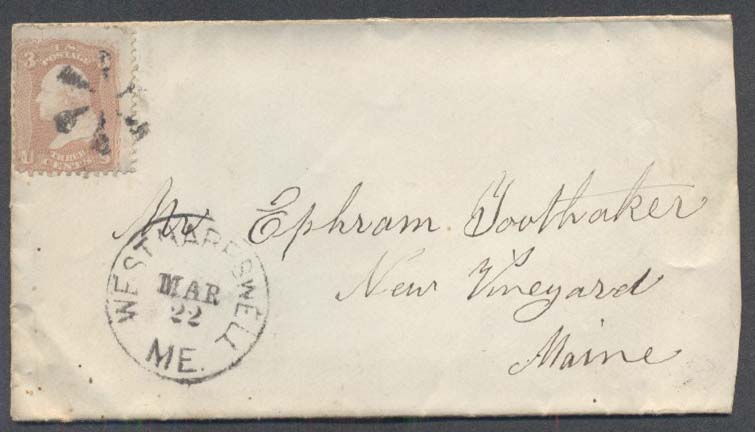 3 U.S. 3
POSTAGE
U
THREE
CENTS
Mr Ephram Toothaker
New Vineyard
Maine
WEST HARPSWELL
MAR
22
ME.